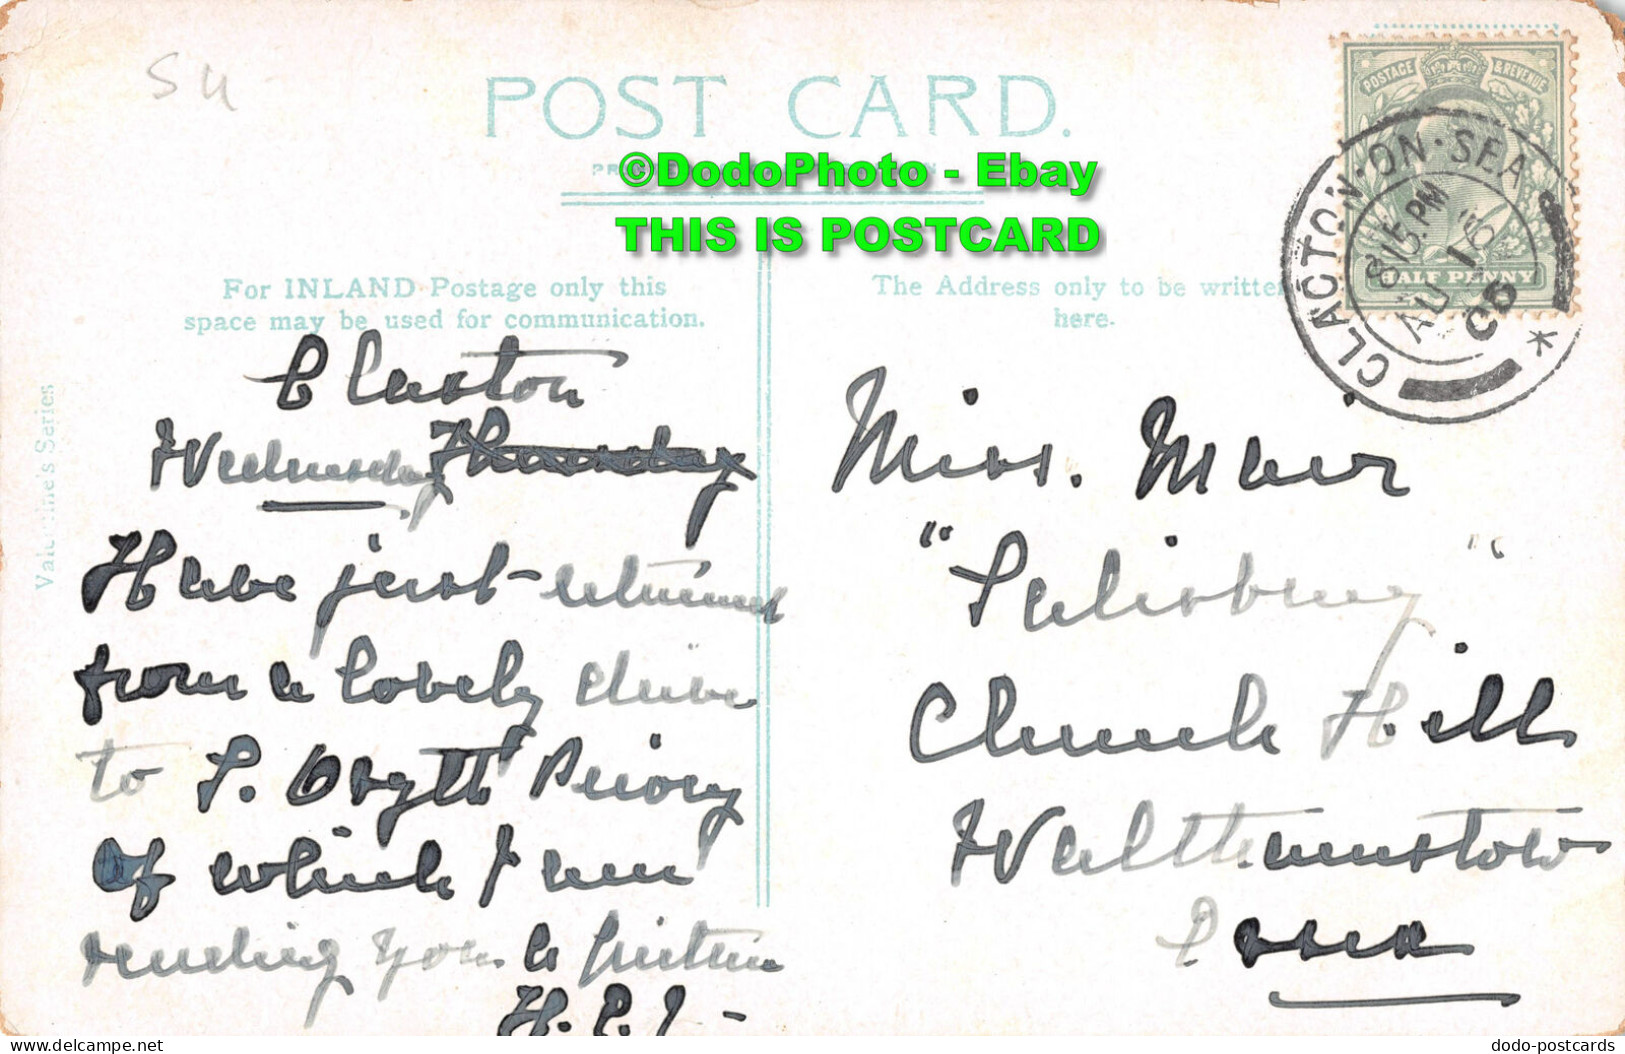 SU
POST CARD.
©DodoPhoto - Ebay
THIS IS POSTCARD
POSTAGE & REVENUE
HALF PENNY
CLACTON·ON·SEA
8 15 PM
AU 16
06
For INLAND Postage only this
space may be used for communication.
The Address only to be written
here.
Valentine's Series
Clacton
Wednesday Thursday
Have just returned
from a lovely drive
to S. Osyth Priory
of which I am
sending you a picture
H.P.J -
Miss. Muir
"Salisbury"
Church Hill
Walthamstow
Essex
dodo-postcards
delcampe.net